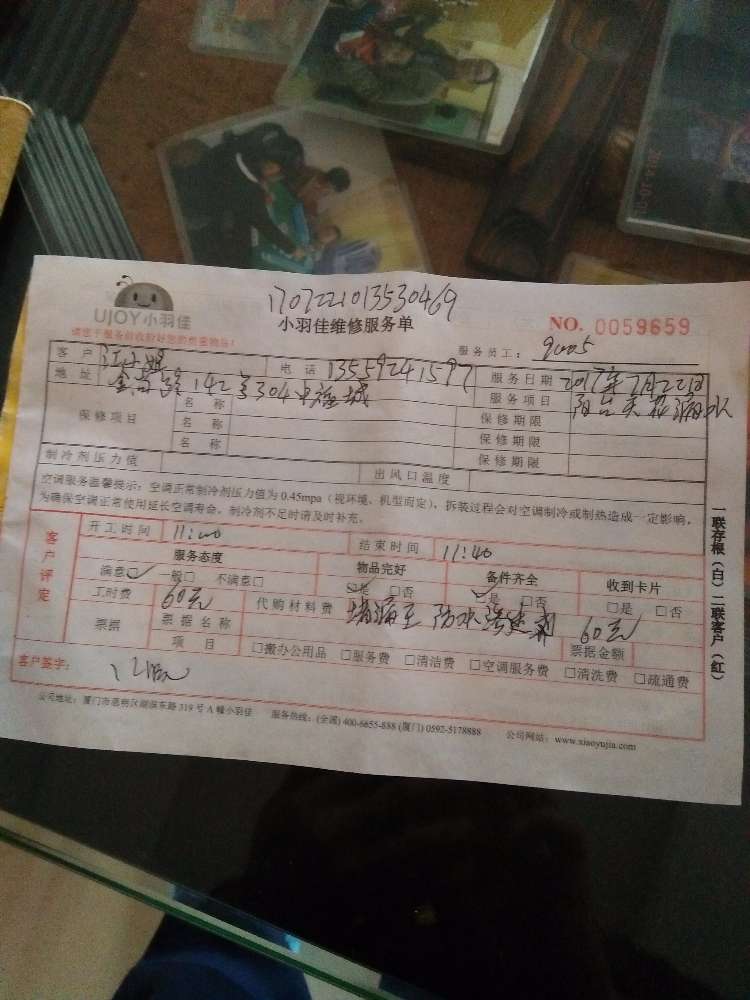 UJOY小羽佳
170722101353​0469
小羽佳维修服务单
NO. 0059659
请您于服务前收好您的贵重物品!
服务员工: 9005
客户 江小姐 电话 13559241597 服务日期 2017年7月22日
地址 金尚路142号304 服务项目 阳台天花漏水
保修项目 名称 保修期限
名称 保修期限
名称 保修期限
制冷剂压力值 出风口温度
空调服务温馨提示:空调正常制冷剂压力值为0.45mpa(视环境、机型而定),拆装过程会对空调制冷或制热造成一定影响,
为确保空调正常使用延长空调寿命,制冷剂不足时请及时补充。
客户评定
开工时间 11:00 结束时间 11:40
服务态度 物品完好 备件齐全 收到卡片
满意☑ 一般□ 不满意□ ☑是 □否 ☑是 □否 □是 □否
工时费 60元 代购材料费 堵漏王 防水 60元
票据 票据名称 票据金额
项目 □搬办公用品 □服务费 □清洁费 □空调服务费 □清洗费 □疏通费
客户签字:
公司地址:厦门市思明区湖滨东路319号A幢小羽佳 服务热线:(全国)400-6655-888 (厦门)0592-5178888 公司网站:www.xiaoyujia.com
一联存根(白)二联客户(红)